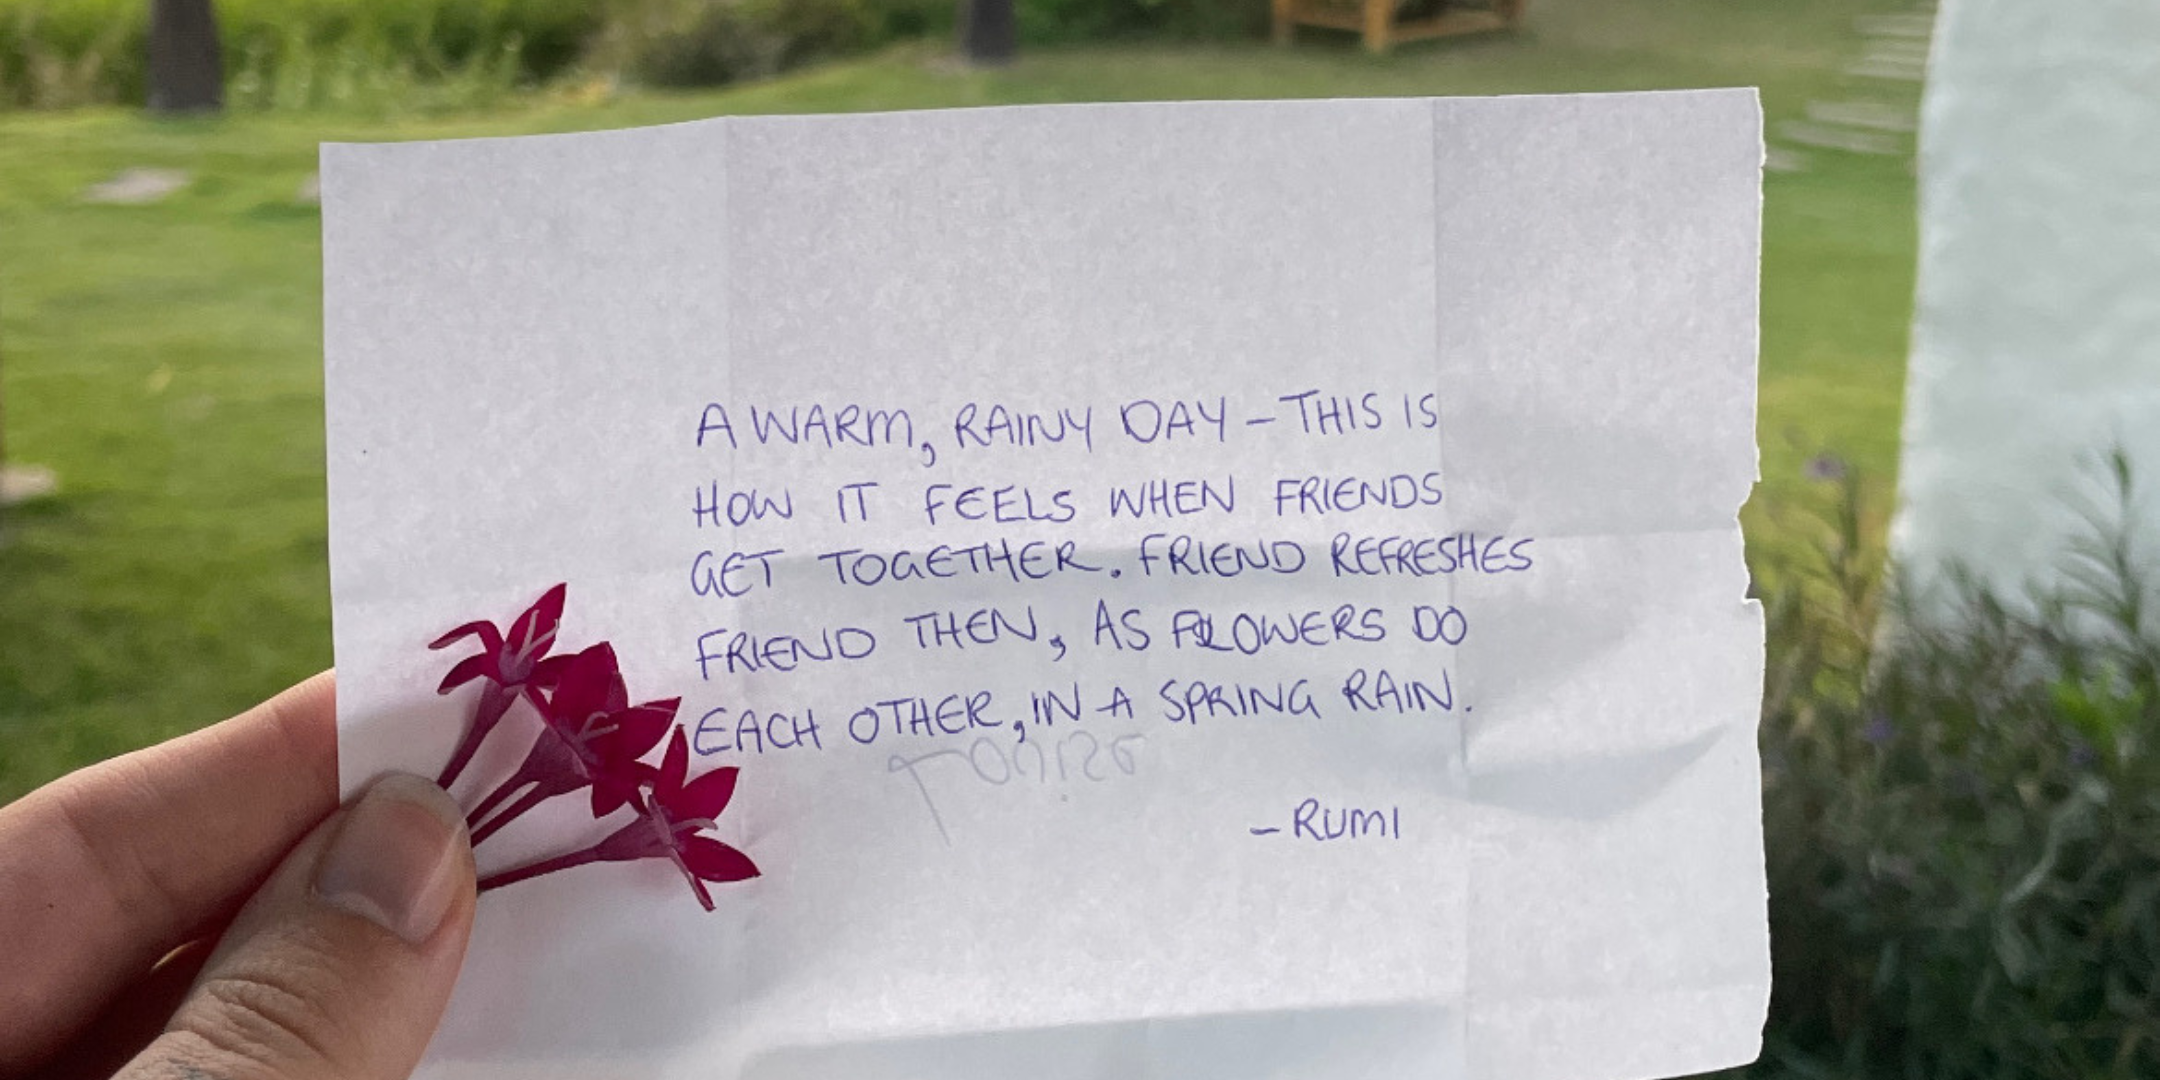 A WARM, RAINY DAY – THIS IS
HOW IT FEELS WHEN FRIENDS
GET TOGETHER. FRIEND REFRESHES
FRIEND THEN, AS FLOWERS DO
EACH OTHER, IN A SPRING RAIN.
– RUMI